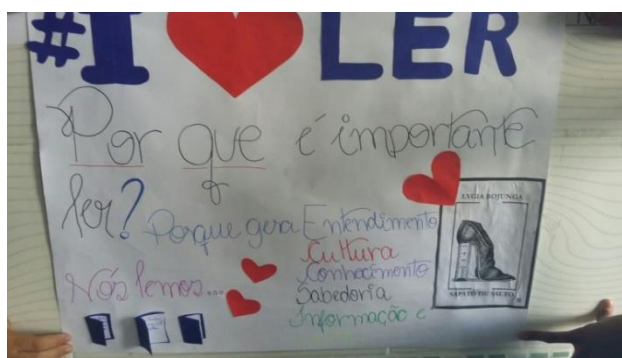 #I LER
Por que é importante
ler? Porque gera Entendimento
Cultura
Conhecimento
Nós lemos... Sabedoria
Informação e
LYGIA BOJUNGA
SAPATO DE SALTO